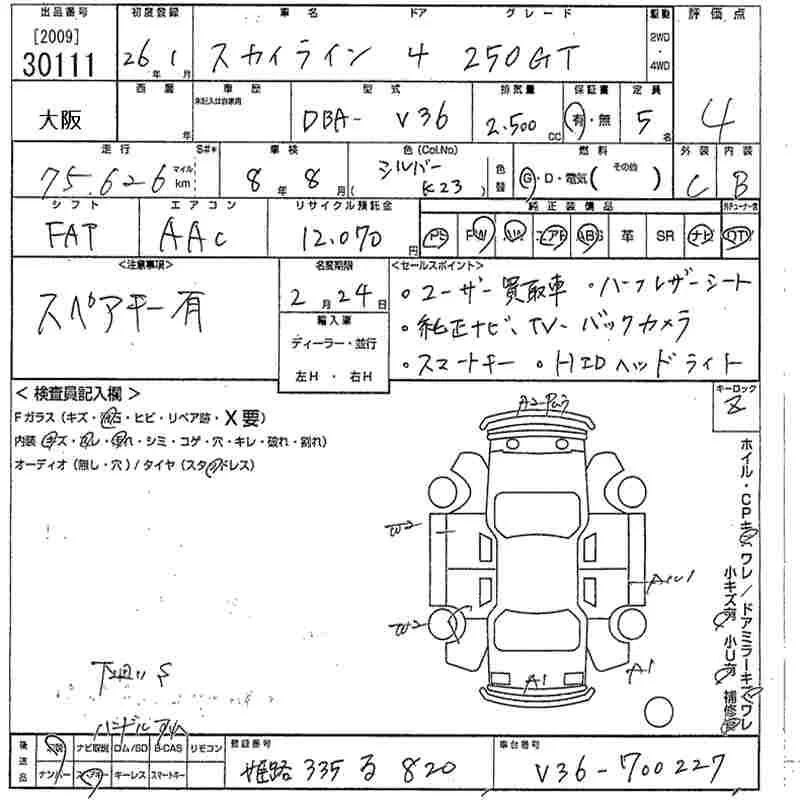 出品番号 初度登録 車名 ドア グレード 駆動 評価点
[2009]
30111 26年 1月 スカイライン 4 250GT 2WD・4WD 4
大阪 西暦 年 車歴 未記入は自家用 型式 DBA- V36 排気量 2.500cc 保証書 有・無 定員 5名
走行 75.626 マイル km S#* 車検 8年 8月 色(Col.No) シルバー (K23) 色替 燃料 G・D・電気( その他 ) 外装 C 内装 B
シフト FAT エアコン AAC リサイクル預託金 12.070円 純正装備品 PS PW エアB AB 革 SR ナビ TV
<注意事項> 名変期限 <セールスポイント>
スペアキー有 2月24日 ・ユーザー買取車 ・ハーフレザーシート
輸入車 ・純正ナビ、TV、バックカメラ
ディーラー・並行 ・スマートキー ・HIDヘッドライト
左H・右H
<検査員記入欄> キーロック
Fガラス(キズ・飛石・ヒビ・リペア跡・X要)
内装(キズ・汚レ・スレ・シミ・コゲ・穴・キレ・破れ・割れ)
オーディオ(無し・穴)/タイヤ(スタッドレス)
W2
W2
A1
A1
ホイル・CPキズ ワレ/ドアミラーキズ ワレ
小キズ有 小U有 補修有
下廻り S
後送品 ナビ取説 ロム/SD B-CAS リモコン
ナンバー スペアキー キーレス スマートキー
登録番号 姫路 335 る 820
車台番号 V36-700227